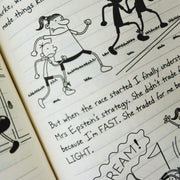 made things
But when the race started I finally underst
Mrs Epstein's strategy. She didn't trade
because I'm FAST. She traded for me be
LIGHT.
CREAM!